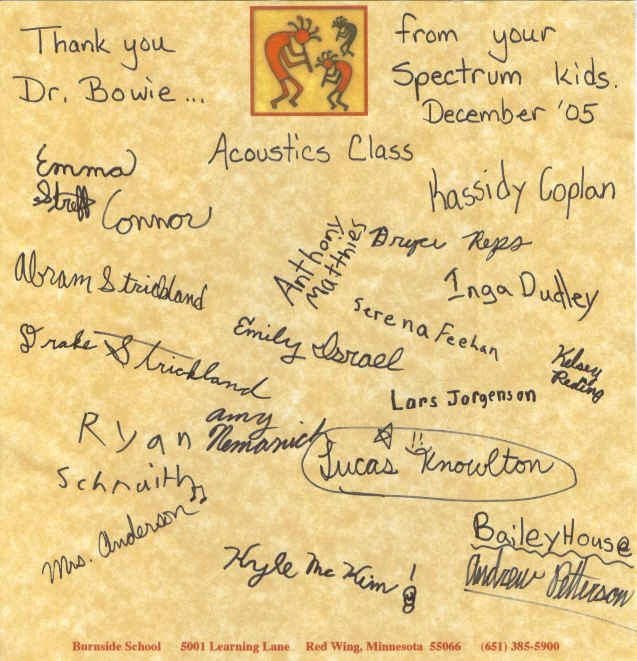 Thank you
Dr. Bowie...
from your
Spectrum kids.
December '05
Acoustics Class
Emma
Streff
Connor
Kassidy Coplan
Anthony
Matthies
Bryce Reps
Abram Strickland
Inga Dudley
Serena Feehan
Drake Strickland
Emily Israel
Kelsey
Reding
Lars Jorgenson
Ryan
Schnaith
Amy
Nemanich
!!
Lucas Knowlton
Mrs. Anderson
Bailey House
Kyle Mc Kim!
Andrew Petterson
Burnside School 5001 Learning Lane Red Wing, Minnesota 55066 (651) 385-5900